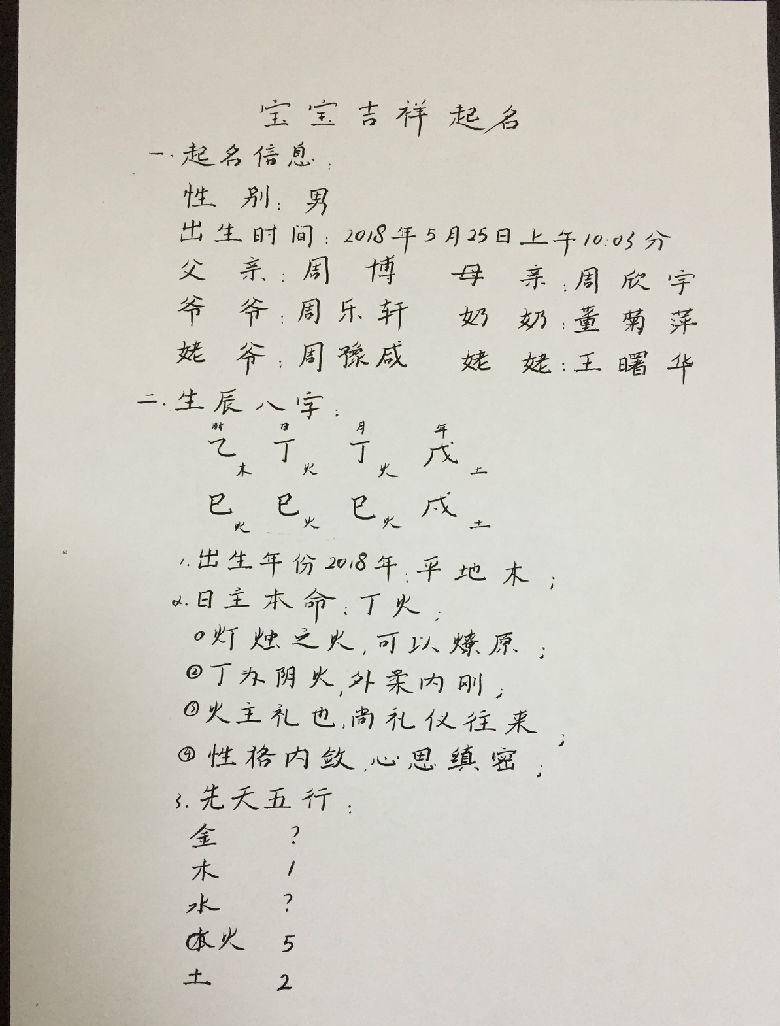 宝宝吉祥起名
一.起名信息:
性别:男
出生时间:2018年5月25日上午10:03分
父亲:周博 母亲:周欣宇
爷爷:周乐轩 奶奶:董菊萍
姥爷:周豫咸 姥姥:王曙华
二.生辰八字:
时 日 月 年
乙木 丁火 丁火 戊土
巳火 巳火 巳火 戌土
1.出生年份2018年:平地木;
2.日主本命:丁火;
①灯烛之火,可以燎原;
②丁为阴火,外柔内刚;
③火主礼也,尚礼仪往来;
④性格内敛,心思缜密;
3.先天五行:
金 ?
木 1
水 ?
火 5
土 2